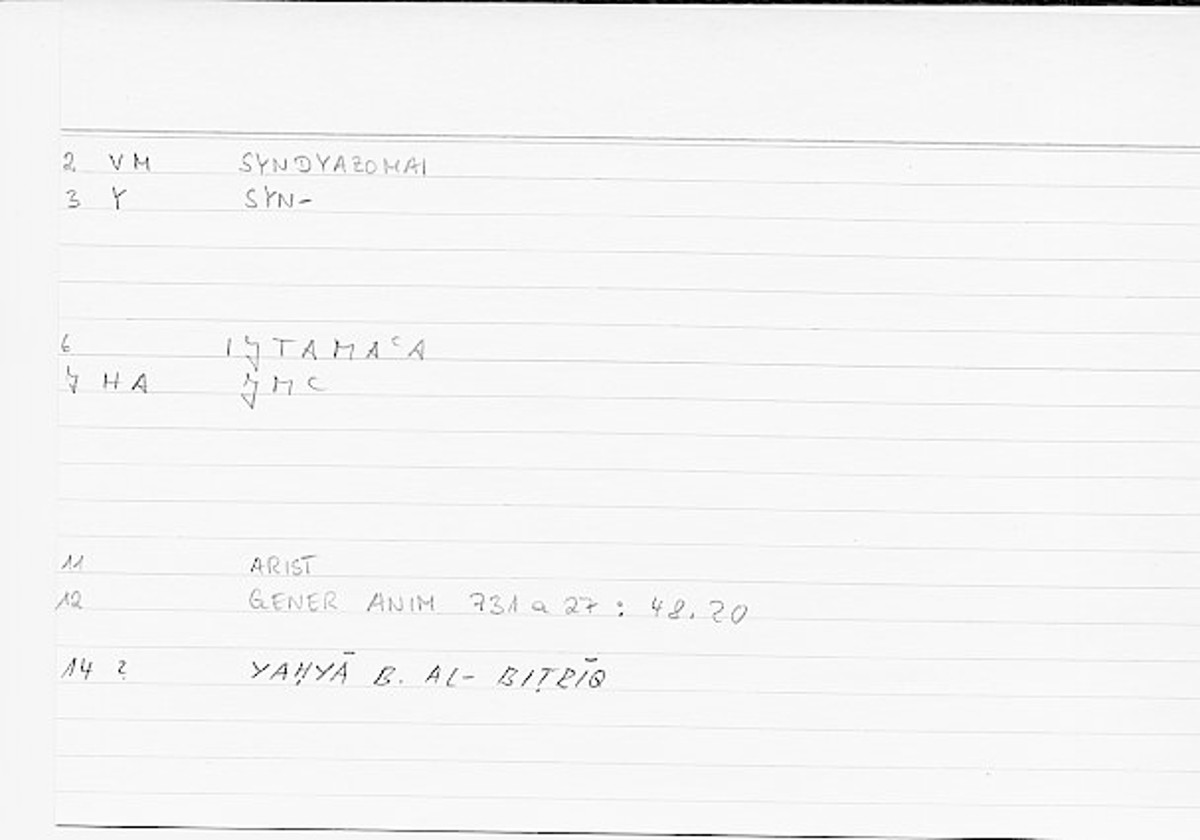 2 VM SYNDYAZOMAI
3 Y SYN-
6 IJTAMAᶜA
7 HA JMᶜ
11 ARIST
12 GENER ANIM 731a27 : 48.20
14 ? YAḤYĀ B. AL-BIṬRĪQ